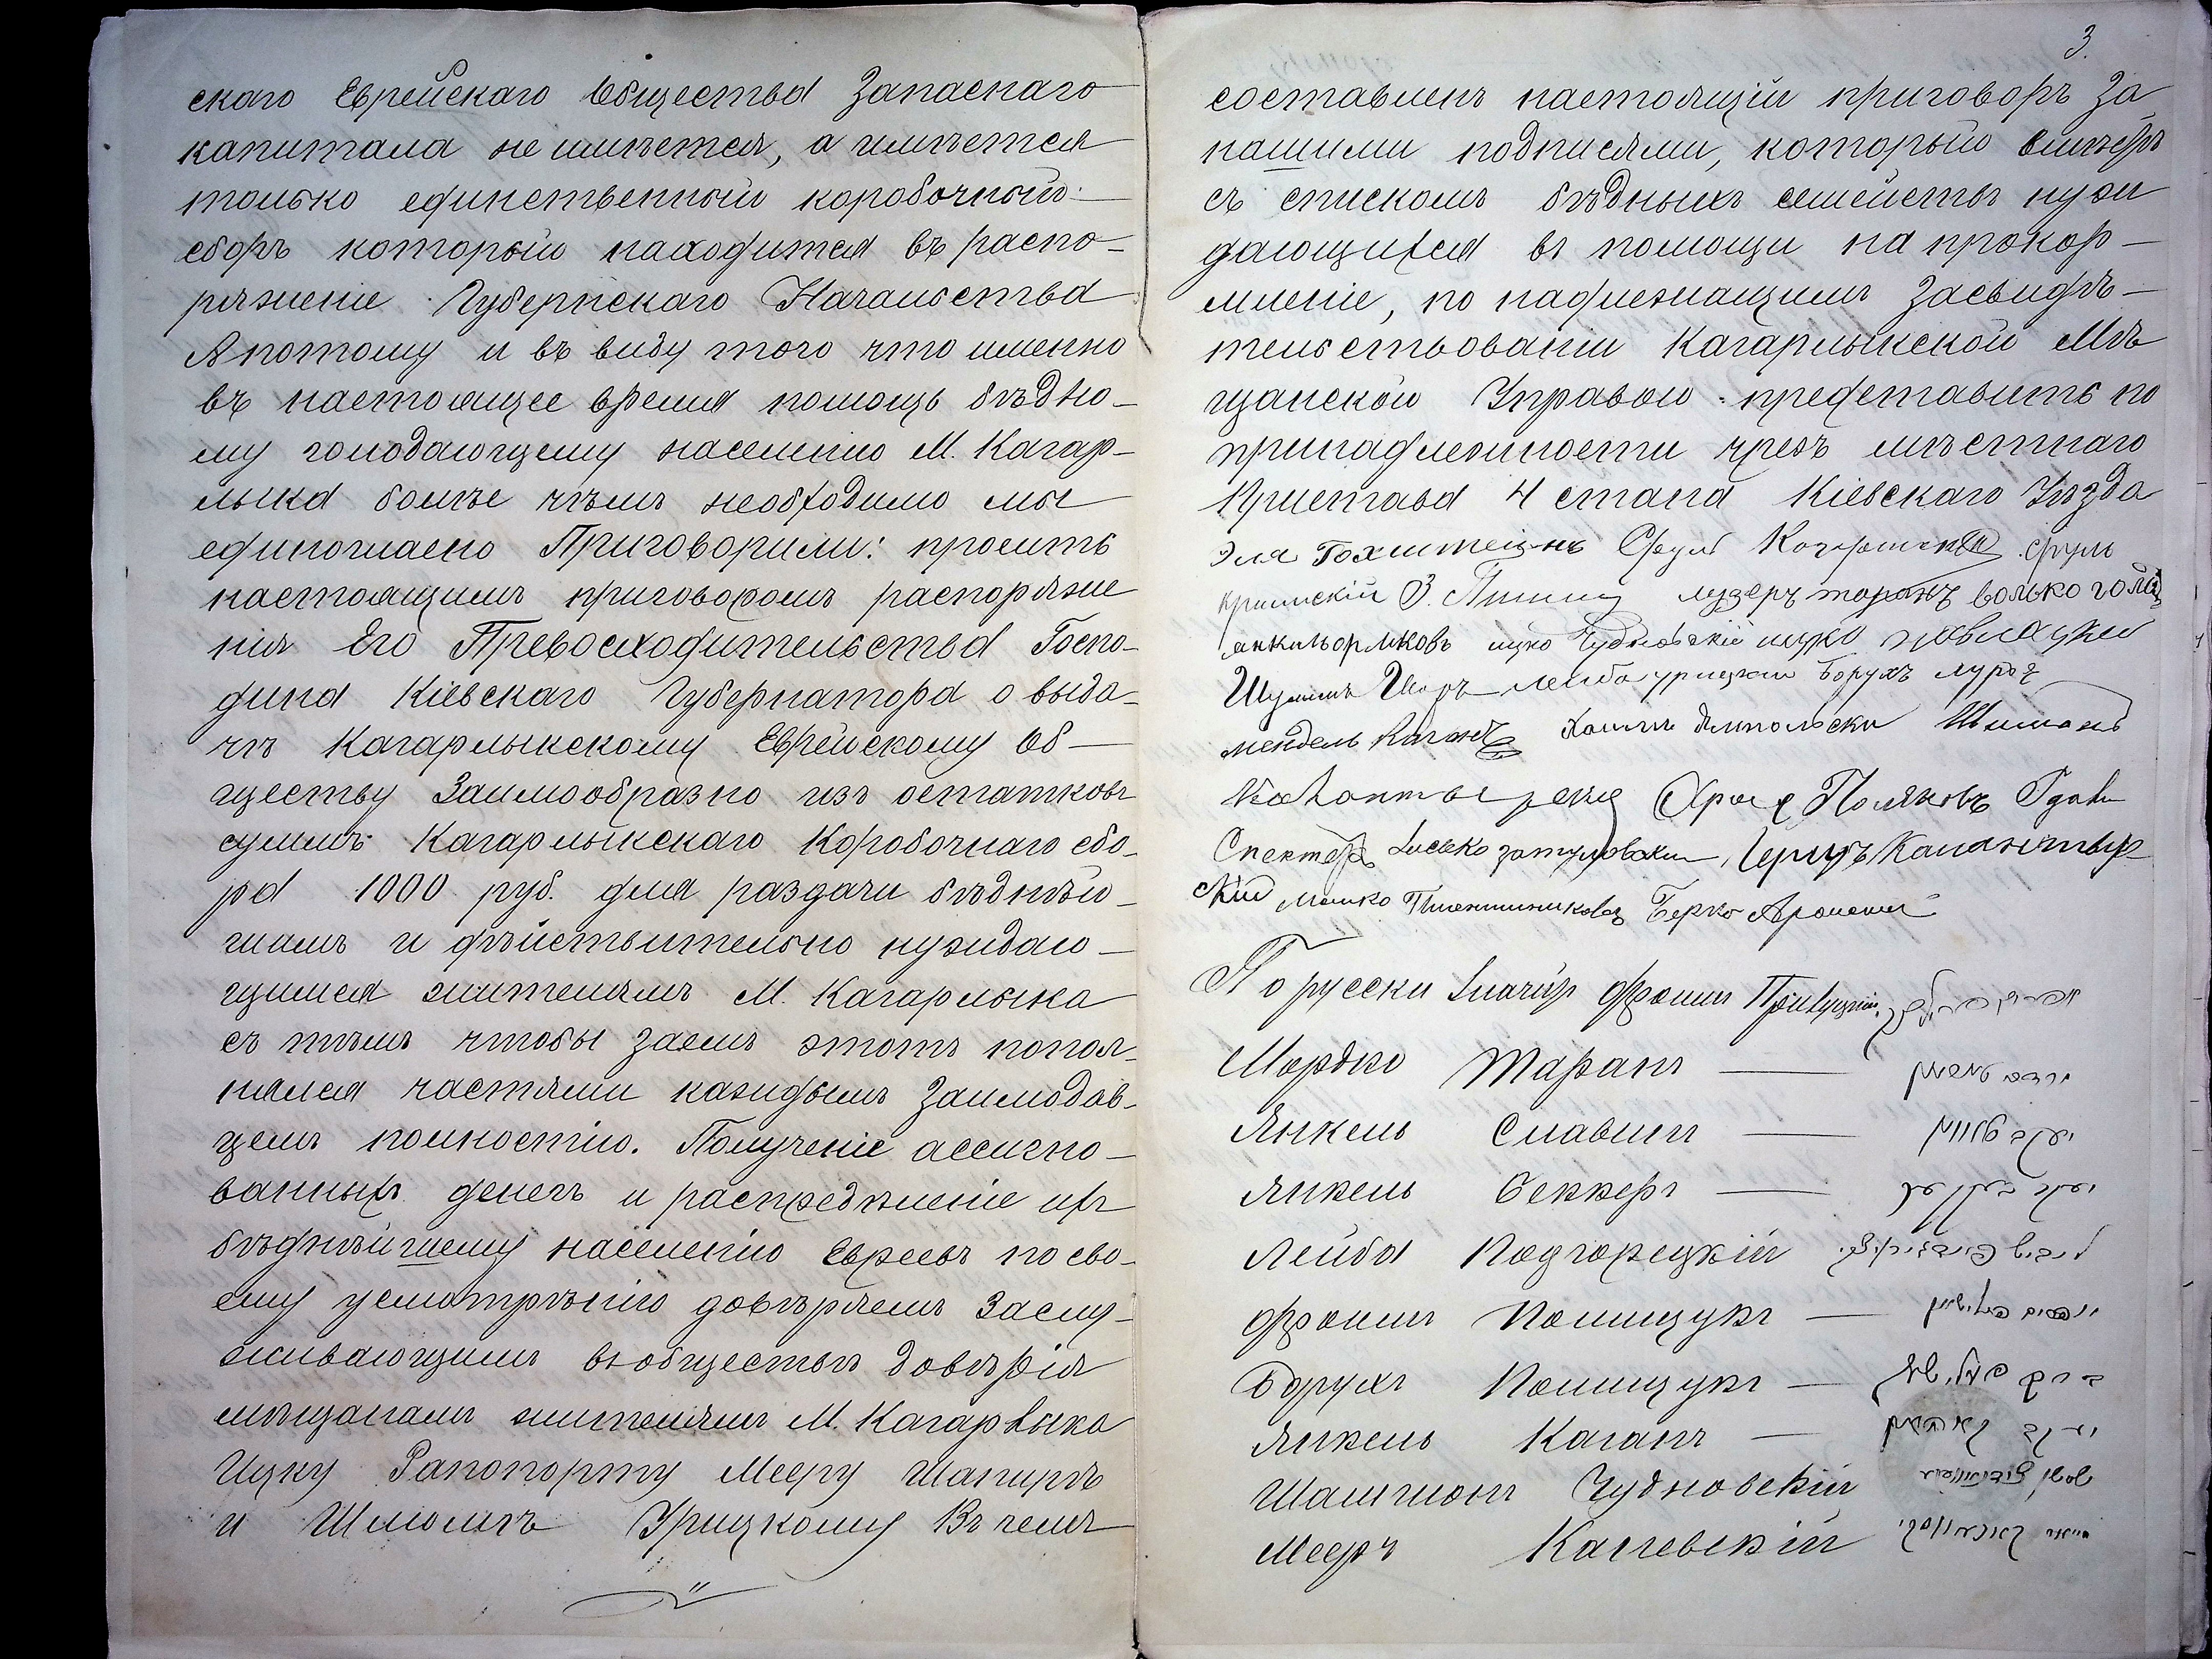 скаго Еврейскаго Общества Запаснаго
капитала не имѣется, а имѣется
только единственный коробочный
сборъ который находится въ распо-
ряженіе Губернскаго Начальства
А потому и въ виду того что именно
въ настоящее время помощь бѣдно-
му голодающему населенію М. Кагар-
лыка болѣе чѣмъ необходимо мы
единогласно Приговорили: просить
настоящимъ приговоромъ распоряже
нія Его Превосходительства Госпо-
дина Кіевскаго Губернатора о выда-
чѣ Кагарлыкскому Еврейскому Об-
ществу Заимообразно изъ остатковъ
суммъ Кагарлыкскаго Коробочнаго сбо-
ра 1000 руб. для раздачи бѣднѣй-
шимъ и дѣйствительно нуждаю-
щимся жителямъ М. Кагарлыка
съ тѣмъ чтобы заемъ этотъ попол-
нялся частями каждымъ Заимодав-
цемъ полностію. Полученіе ассигно-
ванныхъ денегъ и распредѣленіе ихъ
бѣднѣйшему населенію Евреевъ по сво-
ему усмотрѣнію довѣряемъ Заслу-
живающимъ въ обществѣ довѣрія
мѣщанамъ жителямъ М. Кагарлыка
Ицку Рапопорту Мееру Шапирѣ
и Шлиомѣ Урицкому Въ чемъ
3
составленъ настоящій приговоръ За
нашими подписями, который вмѣстѣ
съ спискомъ бѣдныхъ семействъ нуж
дающихся въ помощи на прокор-
мленіе, по надлежащимъ Засвидѣ-
тельствованіи Кагарлыкской Мѣ
щанской Управою представить по
принадлежности чрезъ мѣстнаго
Пристава 4 стана Кіевскаго Уѣзда
Эля Срул Сруль
кримскій З. лузеръ таранъ волько
ицко Чудновскій ицко
Шулимъ лейба урицкий Борухъ
мендель Каганъ Хаимъ Ямпольски Шимонъ
Поляковъ
Спекторъ Иосько
скій мошко Пшеничниковъ Берко
По русски Фроимъ
Мордко Таранъ
Янкель Славинъ
Янкель Беккеръ
Лейба Подгорецкій
Фроимъ Полищукъ
Борухъ Полищукъ
Янкель Каганъ יעקב קאהאן
Шамшонъ Чудновскій
Мееръ Каневскій